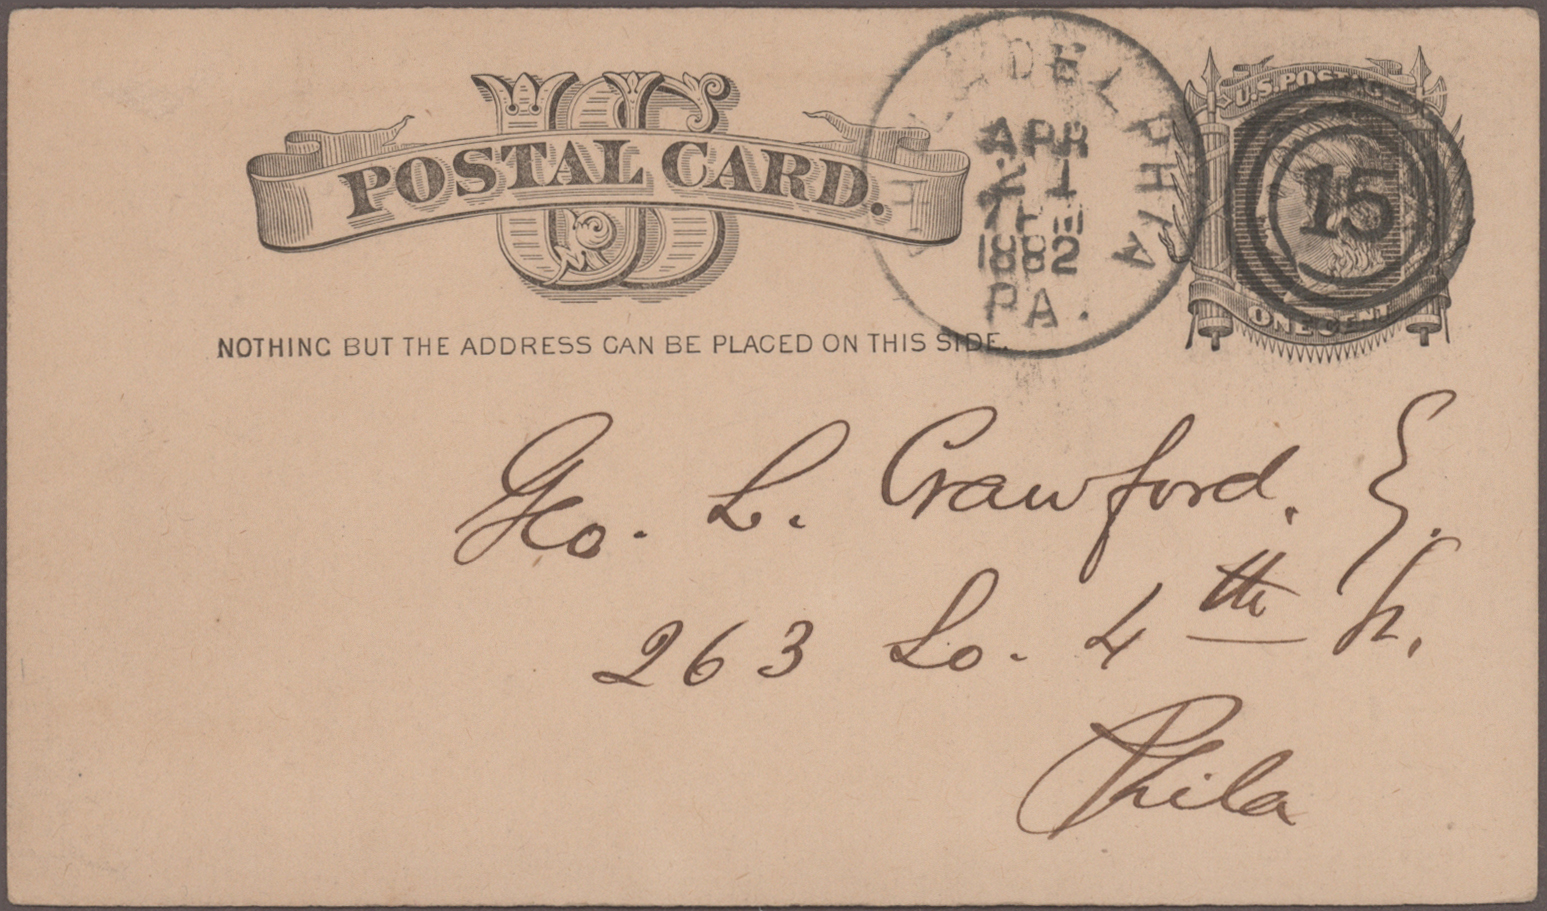 US
POSTAL CARD.
NOTHING BUT THE ADDRESS CAN BE PLACED ON THIS SIDE.
PHILADELPHIA
APR
21
7PM
1882
PA.
U.S. POSTAGE
15
ONE CENT
Geo. L. Crawford.
263 So. 4th St.
Phila